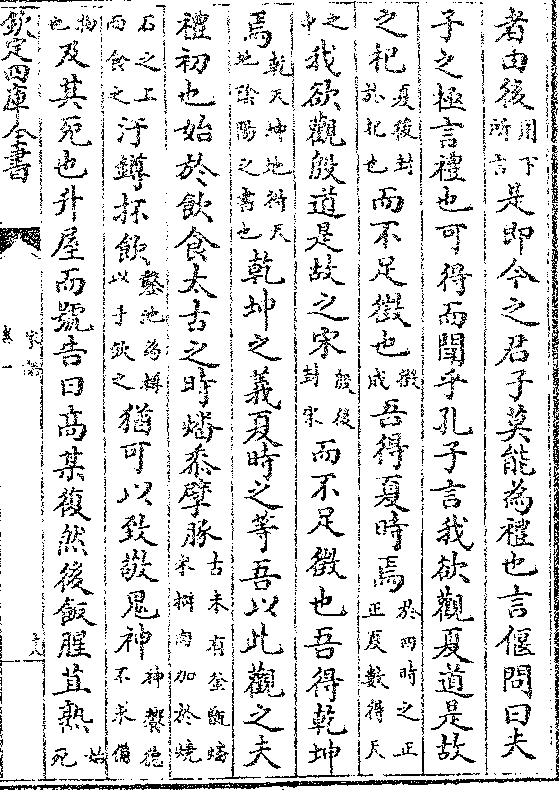 者由後用下所言是即今之君子莫能為禮也言偃問曰夫
子之極言禮也可得而聞乎孔子言我欲觀夏道是故
之杞夏後封於杞也而不足徵也徵成吾得夏時焉於四時之正正夏數得天
之中我欲觀殷道是故之宋殷後封宋而不足徵也吾得乾坤
焉乾天坤地得天地陰陽之書也乾坤之義夏時之等吾以此觀之夫
禮初也始於飲食太古之時燔黍擘豚古未有釜甑燔米捭肉加於燒
石之上而食之汙罇抔飲鑿地為罇以手飲之猶可以致敬鬼神神饗德不求備
物也及其死也升屋而號告曰高某復然後飯腥苴熟始死
欽定四庫全書
家語
卷一